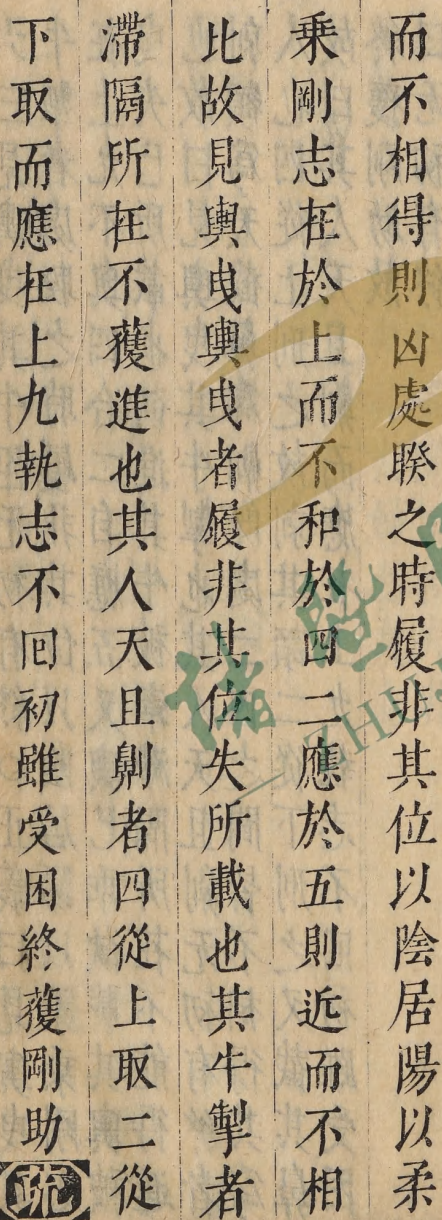 而不相得則凶處睽之時履非其位以陰居陽以柔
乘剛志在於上而不和於四二應於五則近而不相
比故見輿曳輿曳者履非其位失所載也其牛掣者
滯隔所在不獲進也其人天且劓者四從上取二從
下取而應在上九執志不回初雖受困終獲剛助
疏